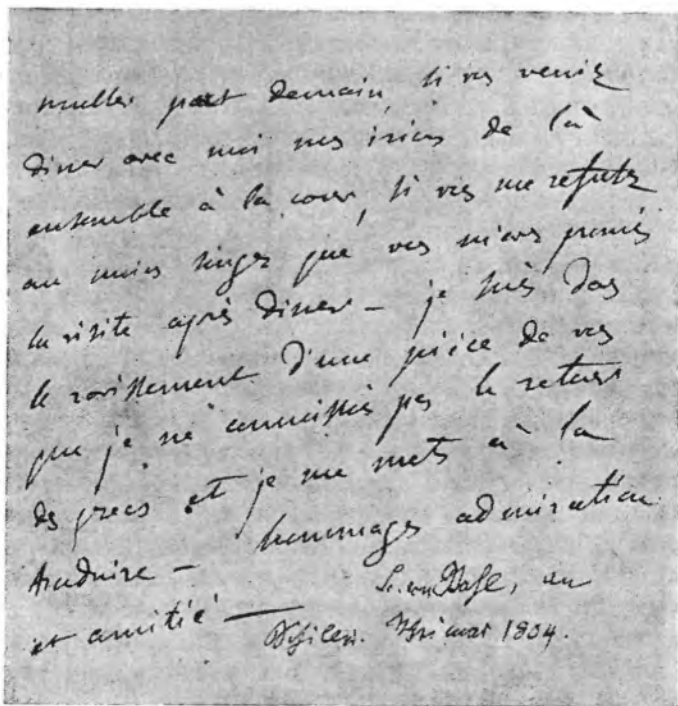 muller part demain, si vs veniez
diner avec moi ns irions de là
ensemble à la cour, si vs me refusez
au moins songez que vs m'avez promis
la visite après diner — je suis dans
le ravissement d'une pièce de vs
que je ne connaissois pas le retour
des grecs et je me mets à la
traduire — hommages admiration
et amitié —
von Stael, an
Schiller. Weimar 1804.